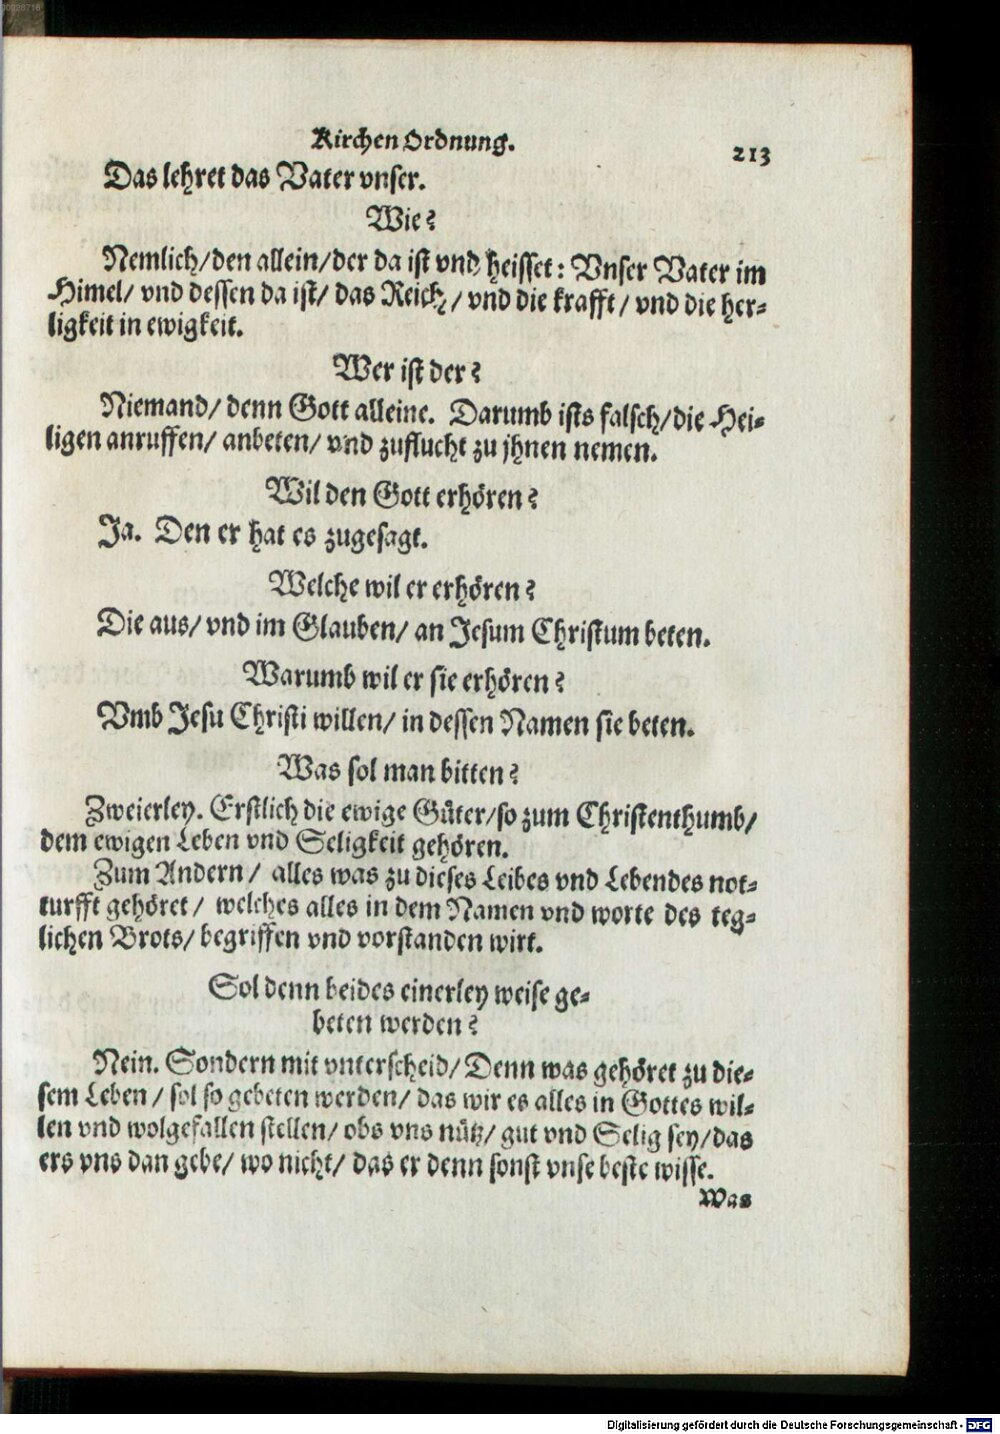 00028716
Kirchen Ordnung.
213
Das lehret das Vater vnser.
Wie?
Nemlich/den allein/der da ist vnd heisset: Vnser Vater im
Himel/ vnd dessen da ist/ das Reich/ vnd die krafft/ vnd die her-
ligkeit in ewigkeit.
Wer ist der?
Niemand/ denn Gott alleine. Darumb ists falsch/die Hei-
ligen anruffen/ anbeten/ vnd zuflucht zu jhnen nemen.
Wil den Gott erhören?
Ja. Den er hat es zugesagt.
Welche wil er erhören?
Die aus/ vnd im Glauben/ an Jesum Christum beten.
Warumb wil er sie erhören?
Vmb Jesu Christi willen/ in dessen Namen sie beten.
Was sol man bitten?
Zweierley. Erstlich die ewige Güter/so zum Christenthumb/
dem ewigen Leben vnd Seligkeit gehören.
Zum Andern/ alles was zu dieses Leibes vnd Lebendes not-
turfft gehöret/ welches alles in dem Namen vnd worte des teg-
lichen Brots/ begriffen vnd vorstanden wirt.
Sol denn beides einerley weise ge-
beten werden?
Nein. Sondern mit vnterscheid/ Denn was gehöret zu die-
sem Leben/ sol so gebeten werden/ das wir es alles in Gottes wil-
len vnd wolgefallen stellen/ obs vns nütz/ gut vnd Selig sey/das
ers vns dan gebe/ wo nicht/ das er denn sonst vnse beste wisse.
Was
Digitalisierung gefördert durch die Deutsche Forschungsgemeinschaft - DFG